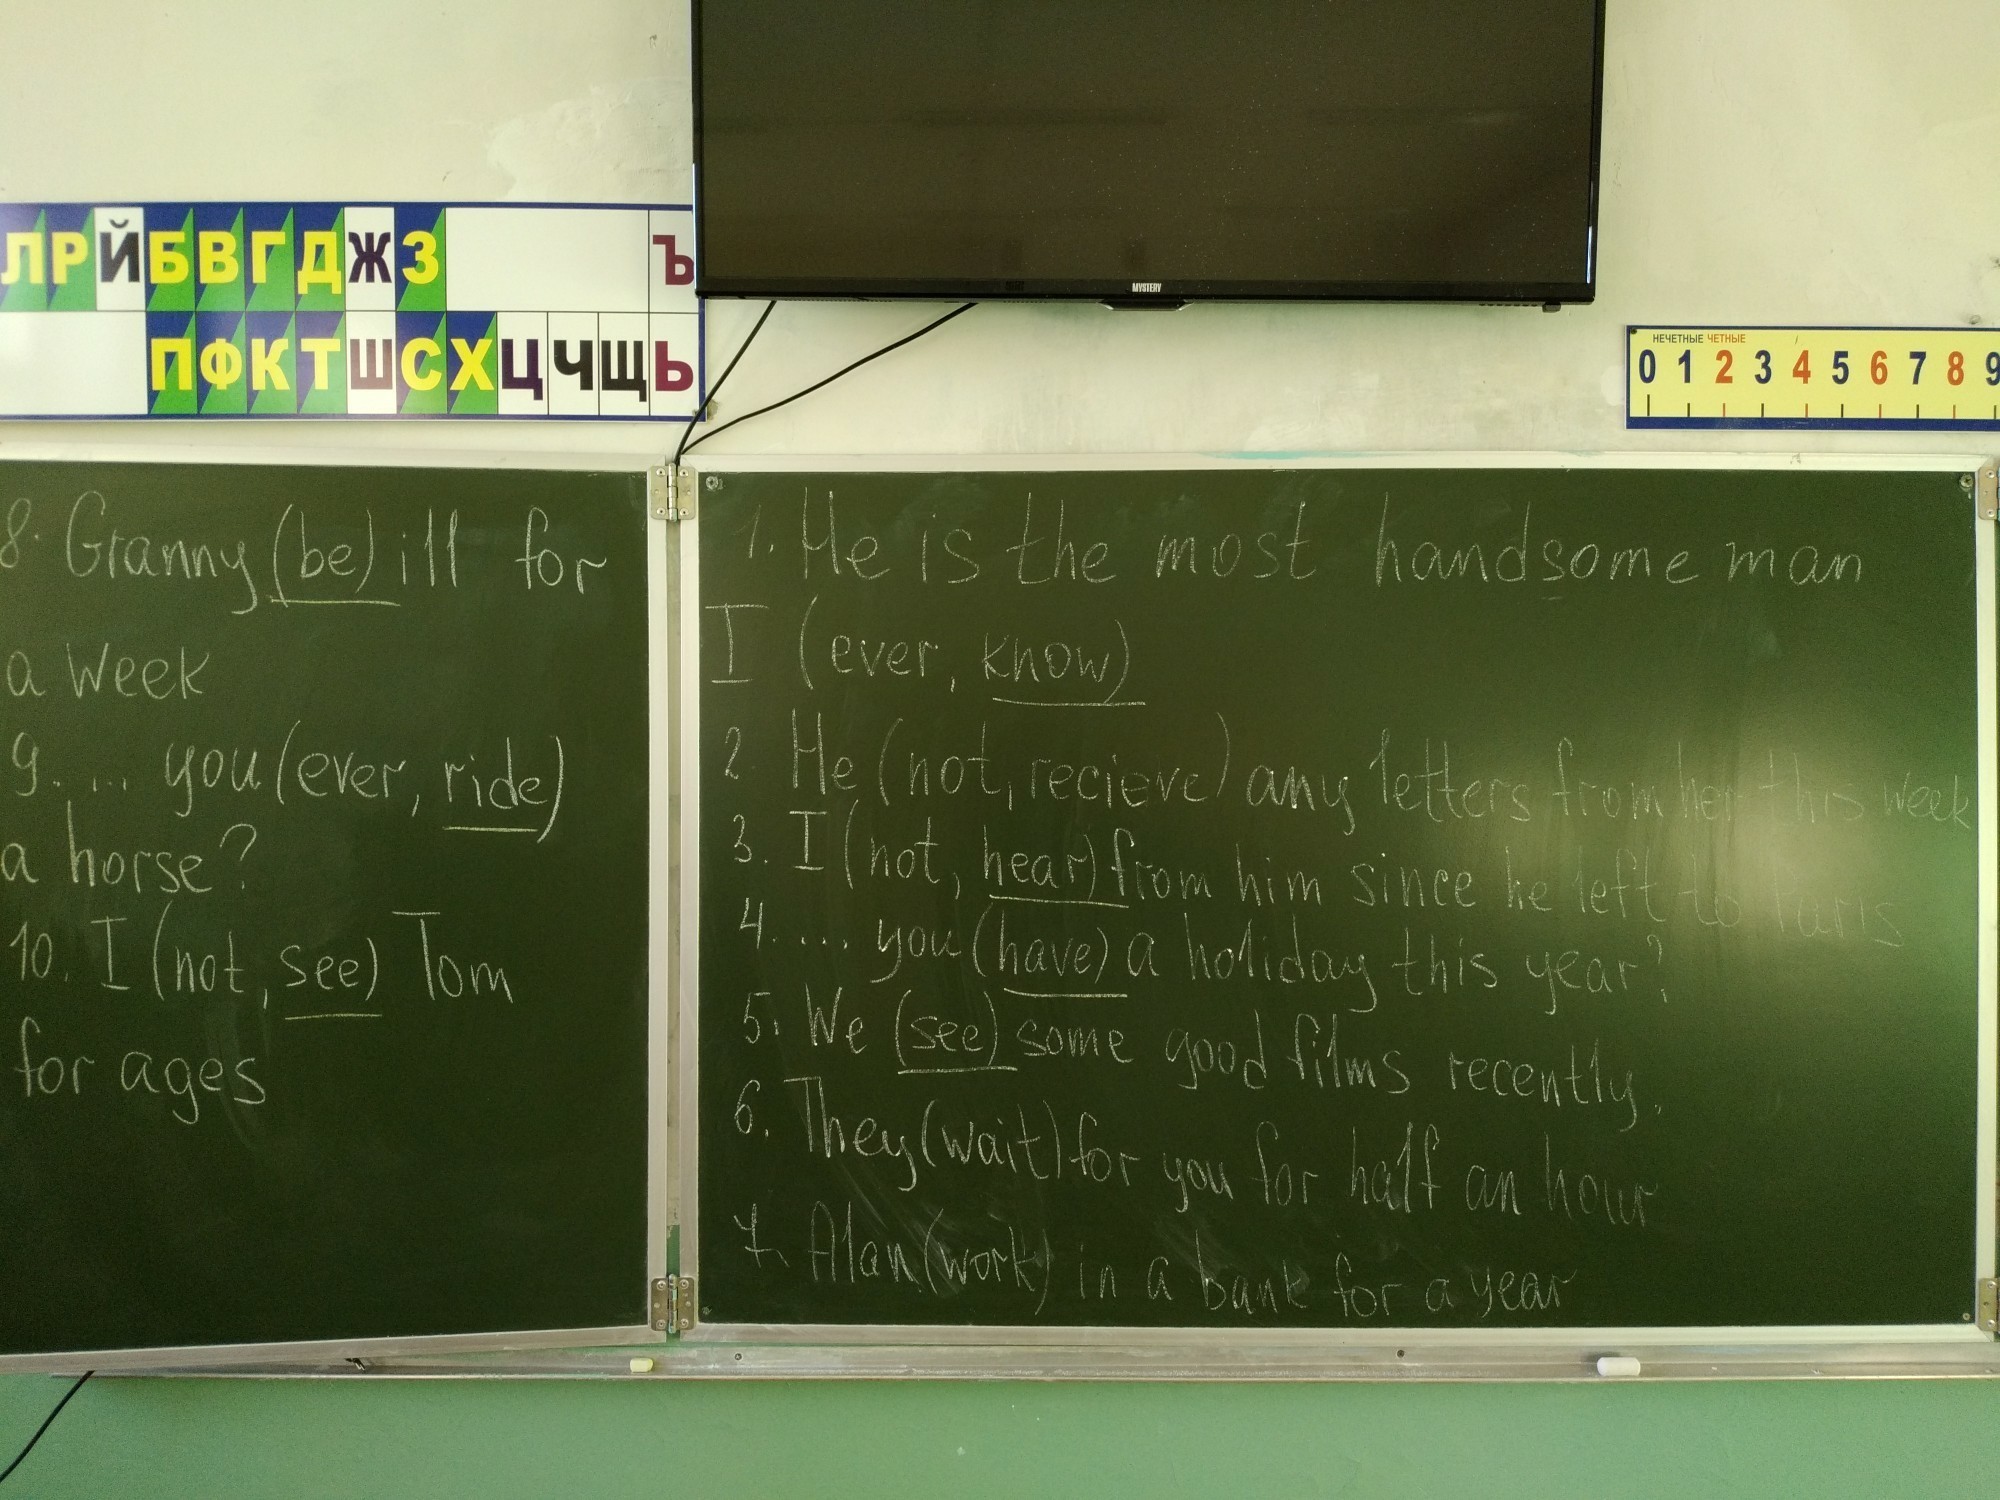 ЛРЙБВГДЖЗ Ъ
ПФКТШСХЦЧЩЬ
MYSTERY
НЕЧЕТНЫЕ ЧЕТНЫЕ
0 1 2 3 4 5 6 7 8 9
8. Granny (be) ill for
a week
9. ... you (ever, ride)
a horse?
10. I (not, see) Tom
for ages
1. He is the most handsome man
I (ever, know)
2 He (not, recieve) any letters from her this week
3. I (not, hear) from him since he left to Paris
4. ... you (have) a holiday this year?
5. We (see) some good films recently.
6. They (wait) for you for half an hour
7. Alan (work) in a bank for a year